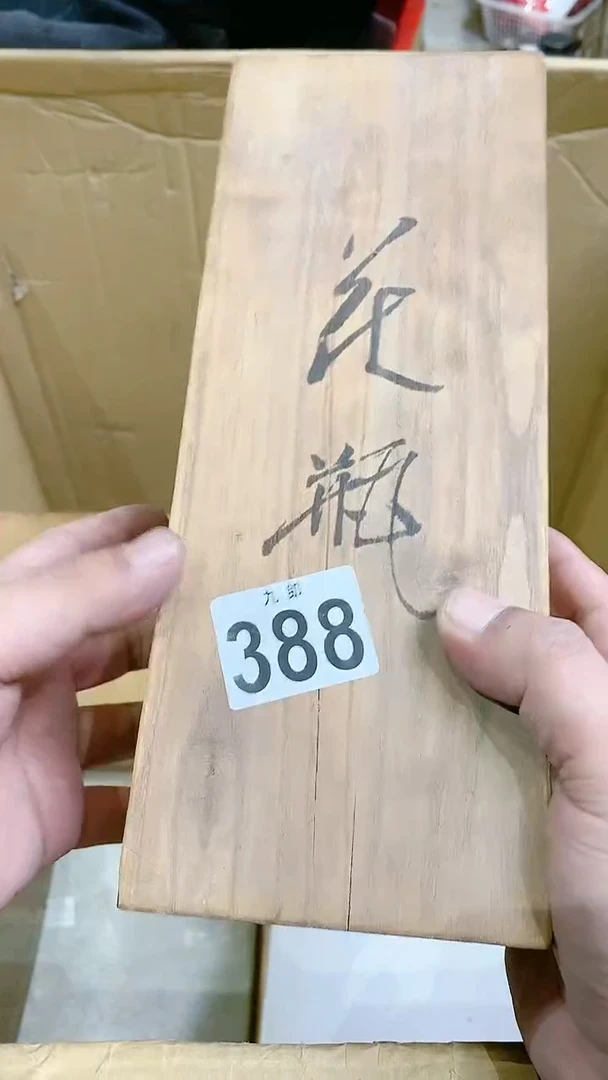 花瓶
九郎
388